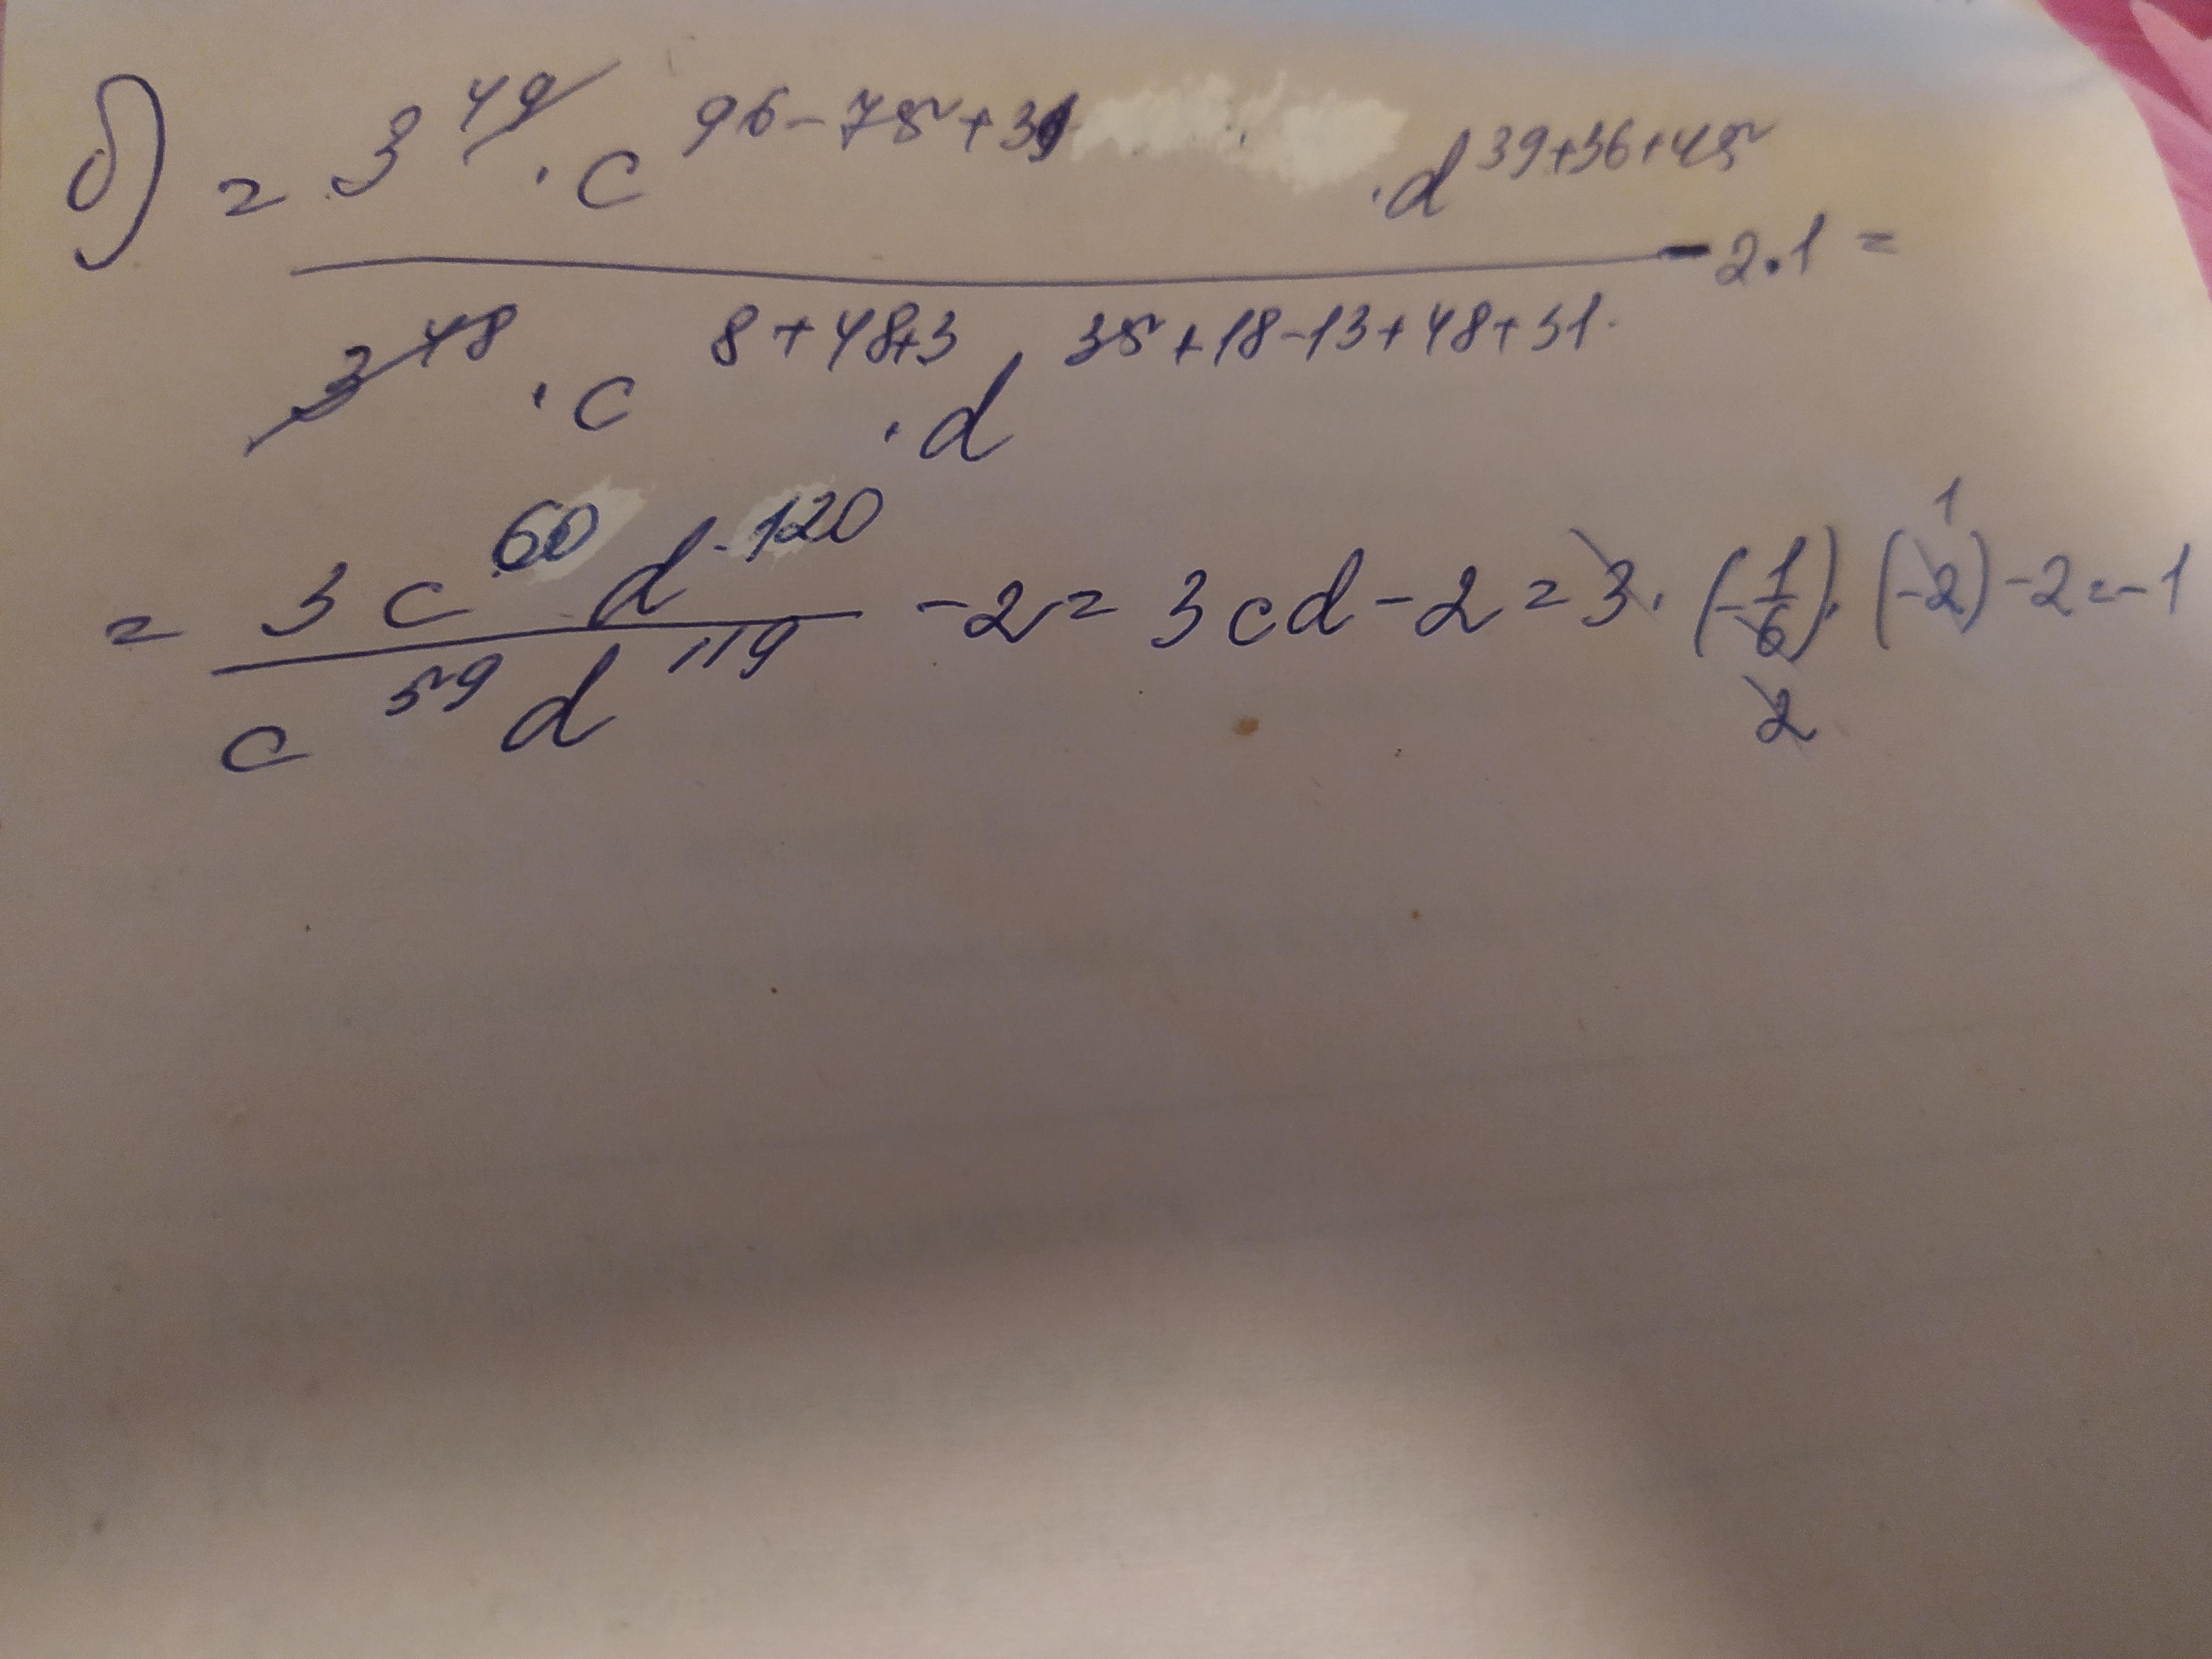 б) = 3^49 · c^96-75+39 · d^39+36+45
3^48 · c^8+48+3 · d^35+18-13+48+31 - 2·1 =
= 3c^60 d^120 / c^59 d^119 - 2 = 3cd - 2 = 3 · (-1/6) · (-2) - 2 = -1
1
2